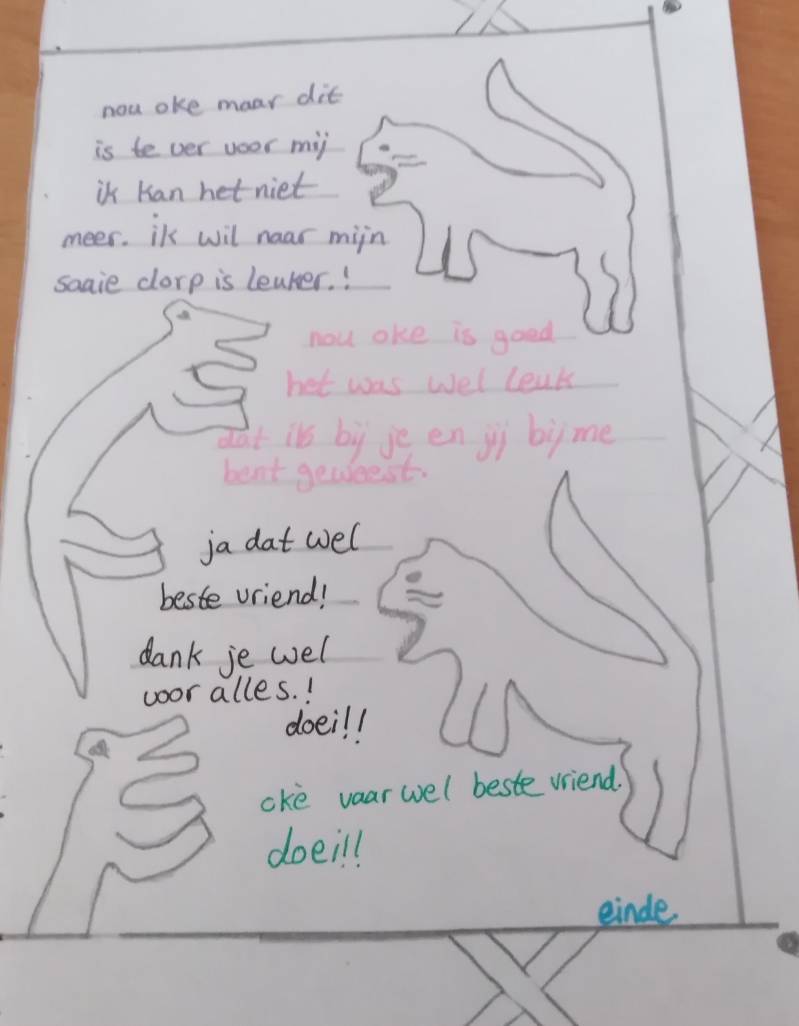 nou oke maar dit
is te ver voor mij
ik kan het niet
meer. ik wil naar mijn
saaie dorp is leuker.!
nou oke is goed
het was wel leuk
dat ik bij je en jij bij me
bent geweest.
ja dat wel
beste vriend!
dank je wel
voor alles.!
doei!!
okè vaar wel beste vriend.
doei!!
einde